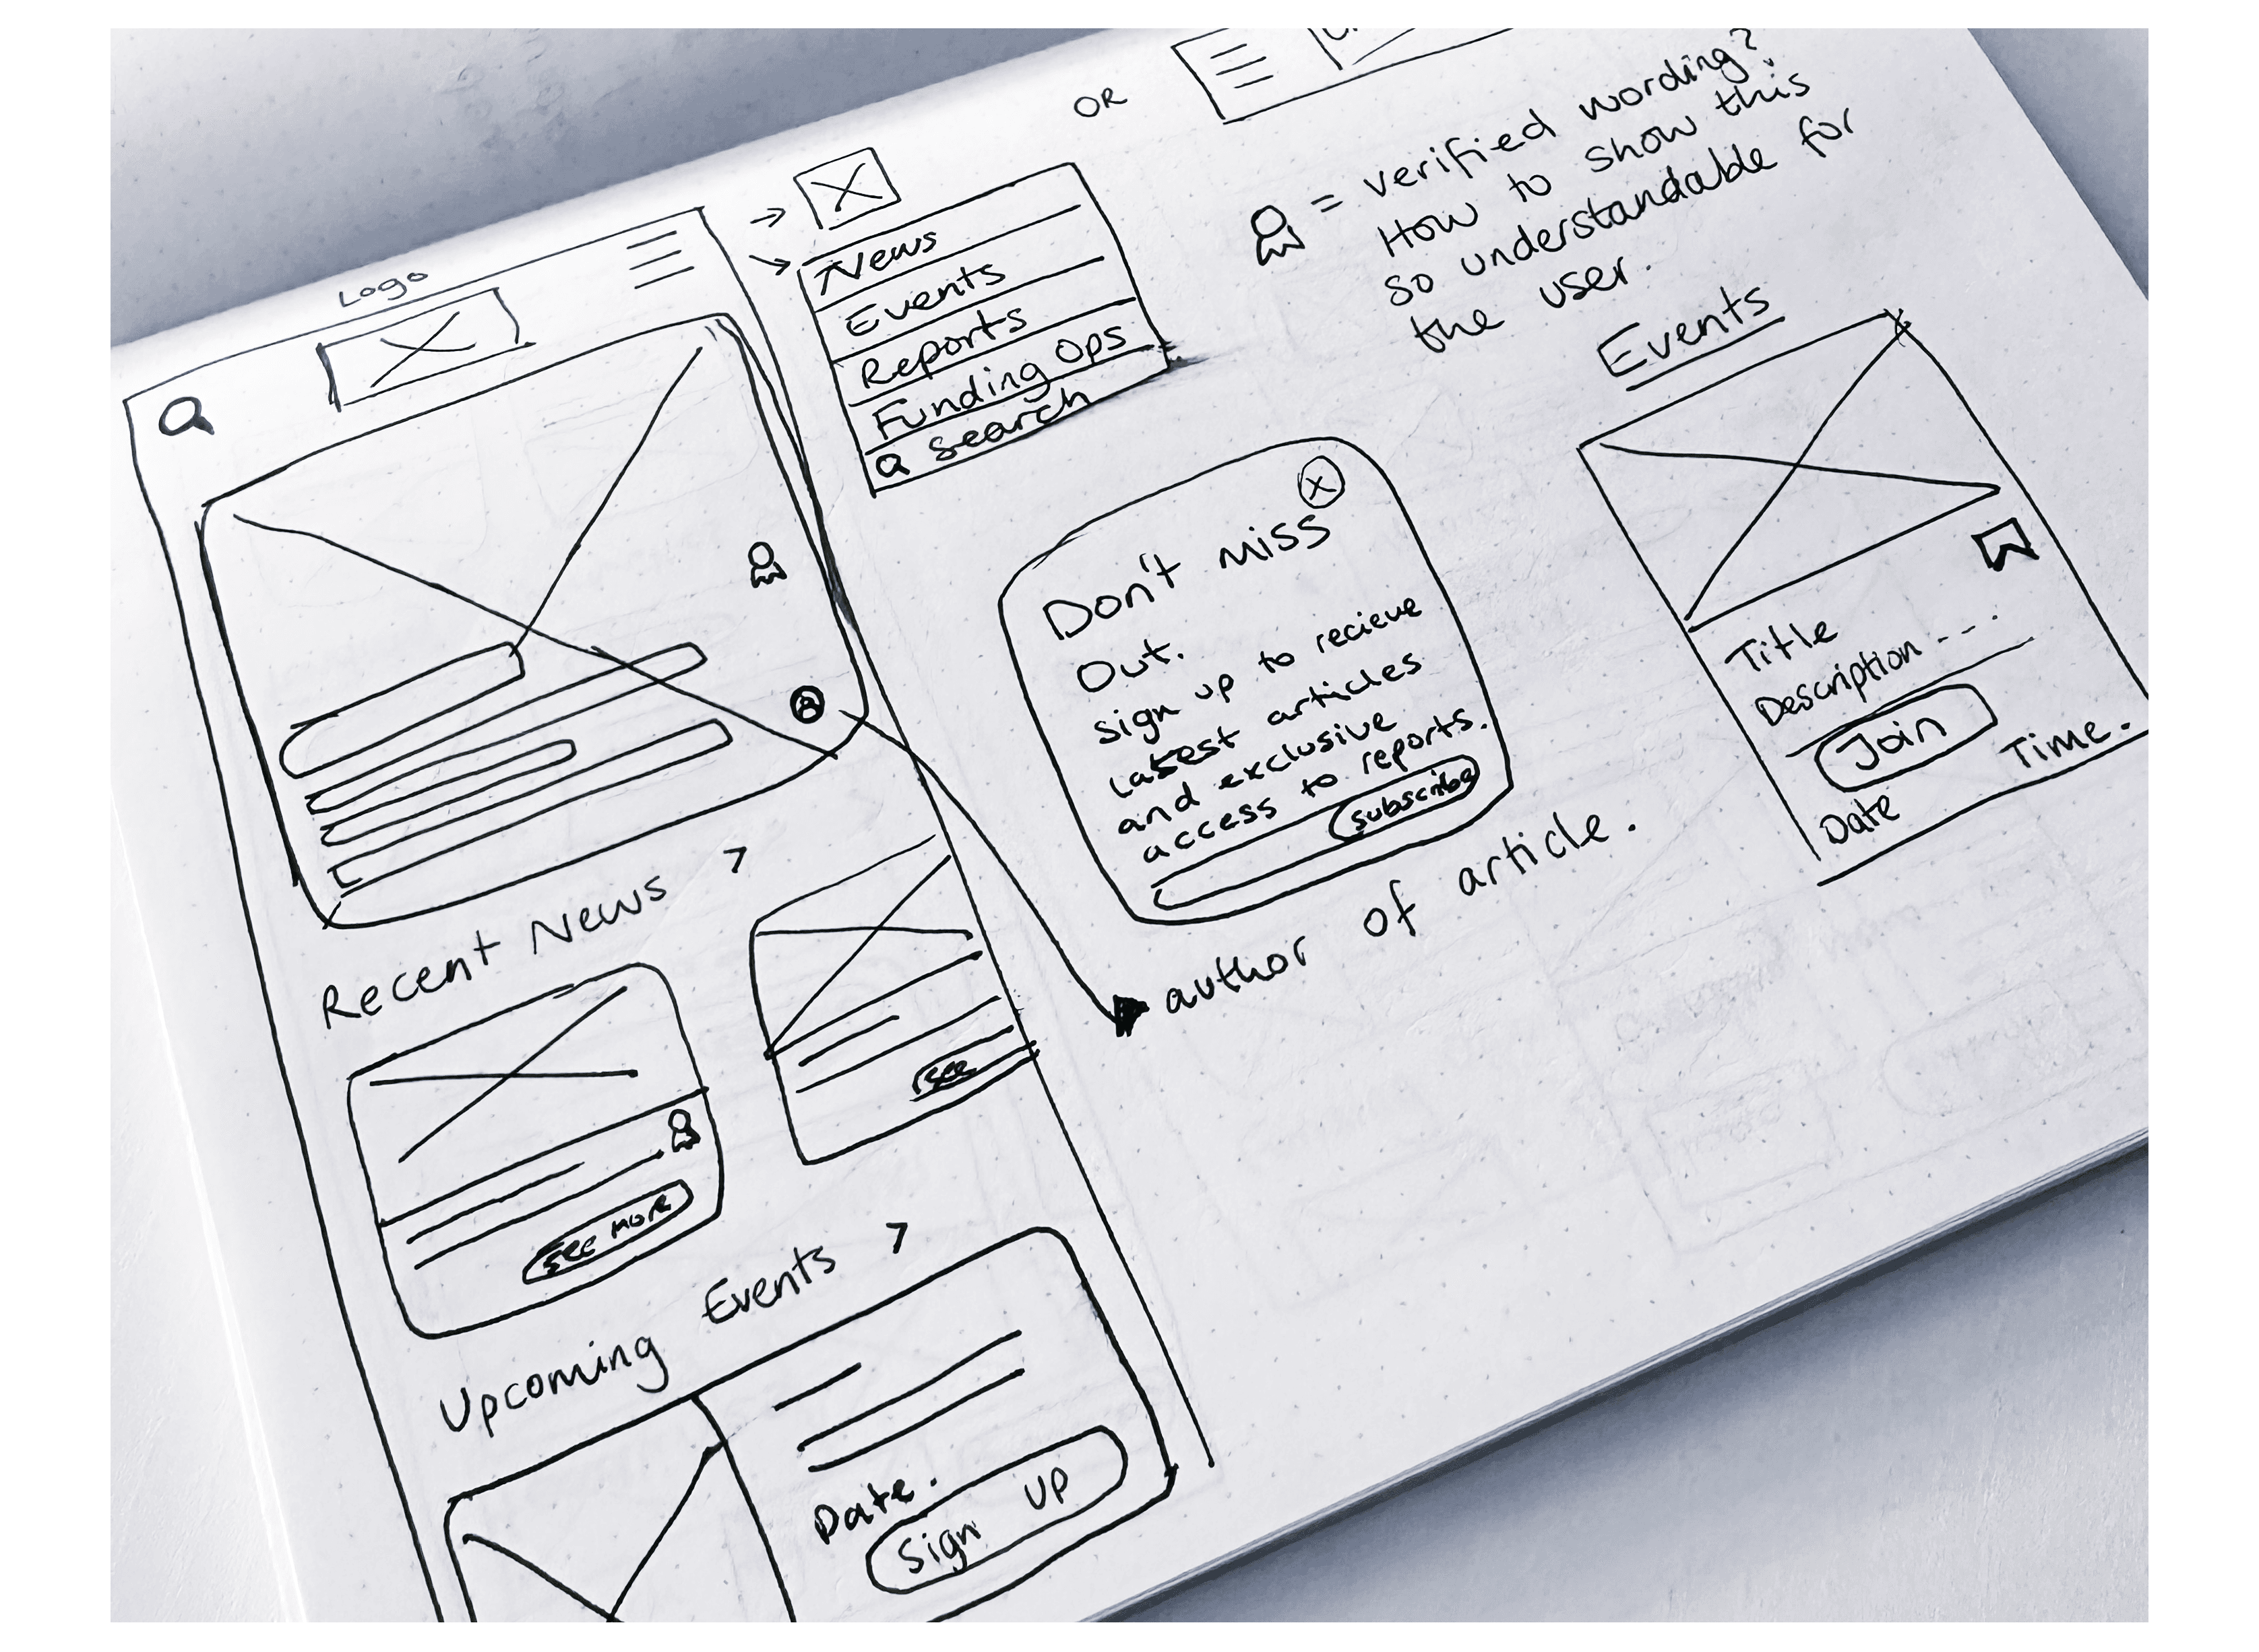 Logo
Recent News >
see more
see
Upcoming Events >
Date.
Sign up
News
Events
Reports
Funding Ops
search
OR
= verified wording?
How to show this
so understandable for
the user.
X
Don't miss
Out.
sign up to recieve
latest articles
and exclusive
access to reports.
subscribe
author of article.
Events
Title
Description ---
Join
Date Time.